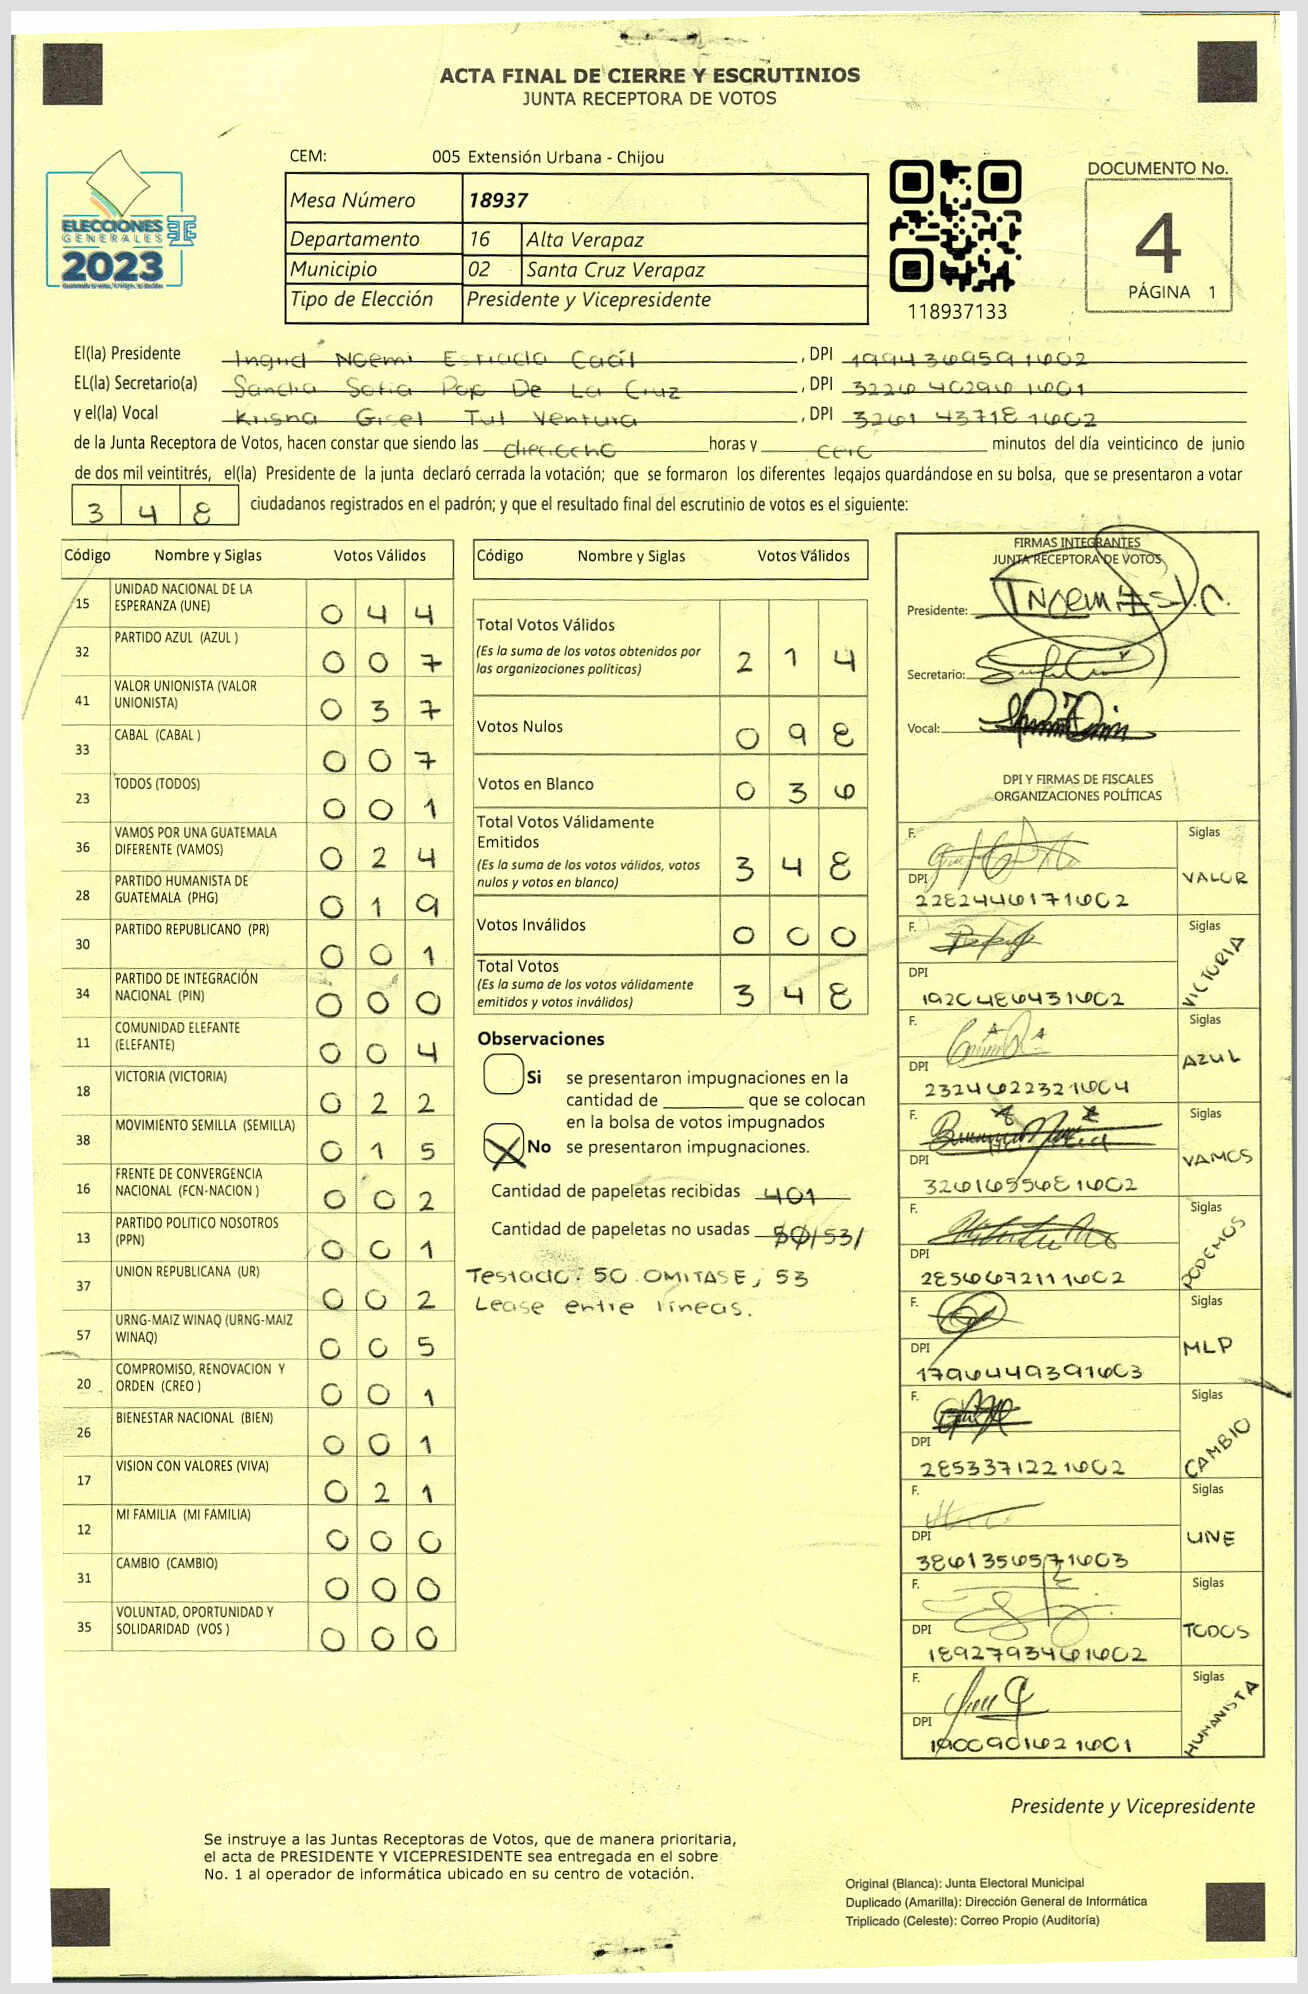 ACTA FINAL DE CIERRE Y ESCRUTINIOS
JUNTA RECEPTORA DE VOTOS
CEM: 005 Extensión Urbana - Chijou
ELECCIONES
GENERALES
2023
Mesa Número 18937
Departamento 16 Alta Verapaz
Municipio 02 Santa Cruz Verapaz
Tipo de Elección Presidente y Vicepresidente
118937133
DOCUMENTO No.
4
PÁGINA 1
El(la) Presidente Ingrid Noemi Estrada Caál, DPI 1994369591602
EL(la) Secretario(a) Sandra Sofia Pop De La Cruz, DPI 3226402961601
y el(la) Vocal Krisna Gisel Tul Ventura, DPI 3261437181602
de la Junta Receptora de Votos, hacen constar que siendo las dieciocho horas y cero minutos del día veinticinco de junio
de dos mil veintitrés, el(la) Presidente de la junta declaró cerrada la votación; que se formaron los diferentes legajos guardándose en su bolsa, que se presentaron a votar
348 ciudadanos registrados en el padrón; y que el resultado final del escrutinio de votos es el siguiente:
Código Nombre y Siglas Votos Válidos
15 UNIDAD NACIONAL DE LA ESPERANZA (UNE) 044
32 PARTIDO AZUL (AZUL ) 007
41 VALOR UNIONISTA (VALOR UNIONISTA) 037
33 CABAL (CABAL ) 007
23 TODOS (TODOS) 001
36 VAMOS POR UNA GUATEMALA DIFERENTE (VAMOS) 024
28 PARTIDO HUMANISTA DE GUATEMALA (PHG) 019
30 PARTIDO REPUBLICANO (PR) 001
34 PARTIDO DE INTEGRACIÓN NACIONAL (PIN) 000
11 COMUNIDAD ELEFANTE (ELEFANTE) 004
18 VICTORIA (VICTORIA) 022
38 MOVIMIENTO SEMILLA (SEMILLA) 015
16 FRENTE DE CONVERGENCIA NACIONAL (FCN-NACION ) 002
13 PARTIDO POLITICO NOSOTROS (PPN) 001
37 UNION REPUBLICANA (UR) 002
57 URNG-MAIZ WINAQ (URNG-MAIZ WINAQ) 005
20 COMPROMISO, RENOVACION Y ORDEN (CREO ) 001
26 BIENESTAR NACIONAL (BIEN) 001
17 VISION CON VALORES (VIVA) 021
12 MI FAMILIA (MI FAMILIA) 000
31 CAMBIO (CAMBIO) 000
35 VOLUNTAD, OPORTUNIDAD Y SOLIDARIDAD (VOS ) 000
Código Nombre y Siglas Votos Válidos
Total Votos Válidos 214
(Es la suma de los votos obtenidos por
las organizaciones políticas)
Votos Nulos 098
Votos en Blanco 036
Total Votos Válidamente
Emitidos 348
(Es la suma de los votos válidos, votos
nulos y votos en blanco)
Votos Inválidos 000
Total Votos 348
(Es la suma de los votos válidamente
emitidos y votos inválidos)
Observaciones
Si se presentaron impugnaciones en la
cantidad de ________ que se colocan
en la bolsa de votos impugnados
X No se presentaron impugnaciones.
Cantidad de papeletas recibidas 401
Cantidad de papeletas no usadas 50/53/
Testado: 50 OMITASE, 53
Lease entre lineas.
FIRMAS INTEGRANTES
JUNTA RECEPTORA DE VOTOS
Presidente:
Secretario:
Vocal:
DPI Y FIRMAS DE FISCALES
ORGANIZACIONES POLÍTICAS
F. Siglas
DPI VALOR
2282446171602
F. Siglas
DPI VICTORIA
1920486431602
F. Siglas
DPI AZUL
2324622321604
F. Siglas
DPI VAMOS
3261655681602
F. Siglas
DPI PODEMOS
2856672111602
F. Siglas
DPI MLP
1796449391603
F. Siglas
DPI CAMBIO
2853371221602
F. Siglas
DPI UNE
3861356571603
F. Siglas
DPI TODOS
1892793461602
F. Siglas
DPI HUMANISTA
1900901621601
Presidente y Vicepresidente
Se instruye a las Juntas Receptoras de Votos, que de manera prioritaria,
el acta de PRESIDENTE Y VICEPRESIDENTE sea entregada en el sobre
No. 1 al operador de informática ubicado en su centro de votación.
Original (Blanca): Junta Electoral Municipal
Duplicado (Amarilla): Dirección General de Informática
Triplicado (Celeste): Correo Propio (Auditoría)